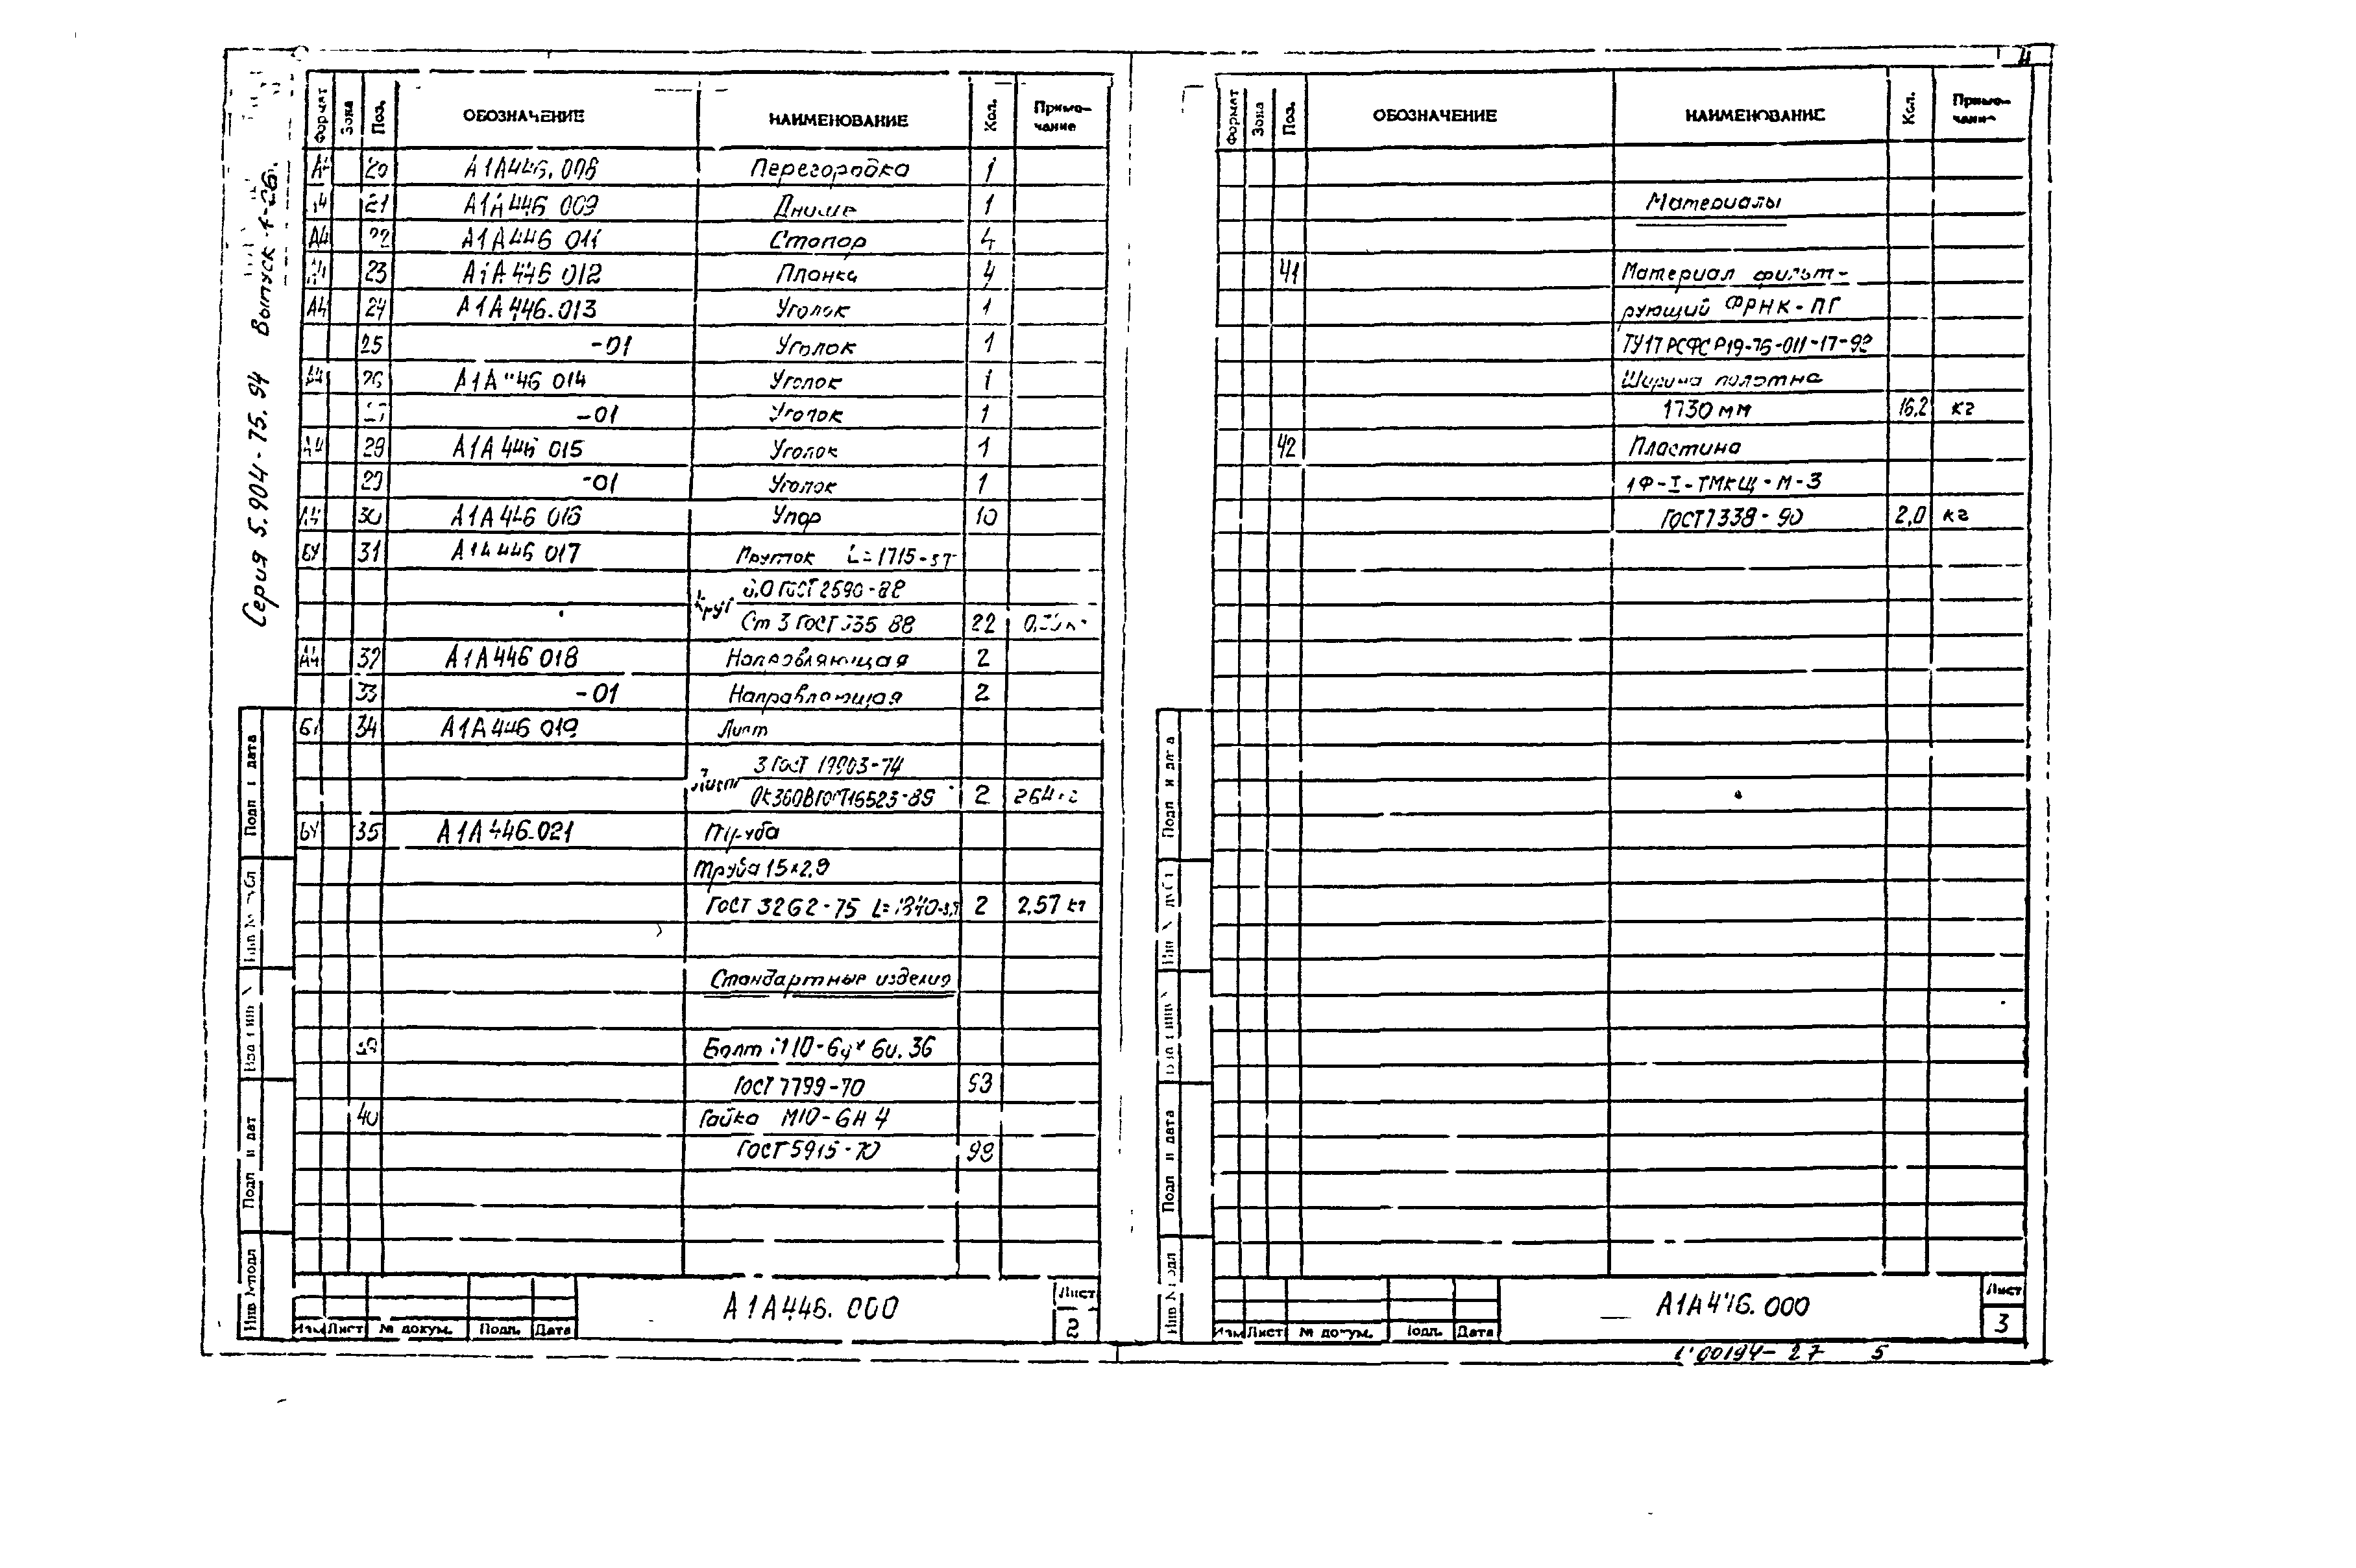 4
Серия 5.904-75.94 Выпуск 1-26.
Формат Зона Поз. ОБОЗНАЧЕНИЕ НАИМЕНОВАНИЕ Кол. Приме-чание
А4 20 А1А446.008 Перегородка 1
А4 21 А1А446 009 Днище 1
А4 22 А1А446 011 Стопор 4
А4 23 А1А446 012 Планка 4
А4 24 А1А446.013 Уголок 1
25 -01 Уголок 1
А4 26 А1А446 014 Уголок 1
-01 Уголок 1
А4 28 А1А446 015 Уголок 1
29 -01 Уголок 1
А4 30 А1А446 016 Упор 10
БЧ 31 А1А446 017 Пруток L=1715
Круг ГОСТ 2590-88
Ст 3 ГОСТ 535 88 22
А4 32 А1А446 018 Направляющая 2
33 -01 Направляющая 2
34 А1А446 019 Лист
3 ГОСТ 19903-74
Лист ОК360ВГОСТ16523-89 2
БЧ 35 А1А446.021 Труба
Труба 15×2,8
ГОСТ 3262-75 2 2,57 кг
Стандартные изделия
Болт М10-6g× 36
ГОСТ 7799-70
40 Гайка М10-6Н 4
ГОСТ 5915-70
Изм Лист № докум. Подп. Дата
А1А446.000
Лист
2
Подп и дата
Инв № дубл
Взам инв №
Подп и дата
Инв № подл
Формат Зона Поз. ОБОЗНАЧЕНИЕ НАИМЕНОВАНИЕ Кол. Приме-чание
Материалы
41 Материал фильт-
рующий ФРНК-ПГ
ТУ17 РСФСР19-76-011-17-92
Ширина полотна
1730 мм 16,2 кг
42 Пластина
1Ф-I-ТМКЩ-М-3
ГОСТ 7338-90 2,0 кг
Изм Лист № докум. Подп. Дата
А1А446.000
Лист
3
Подп и дата
Инв № дубл
Взам инв №
Подп и дата
Инв № подл
00194-27 5